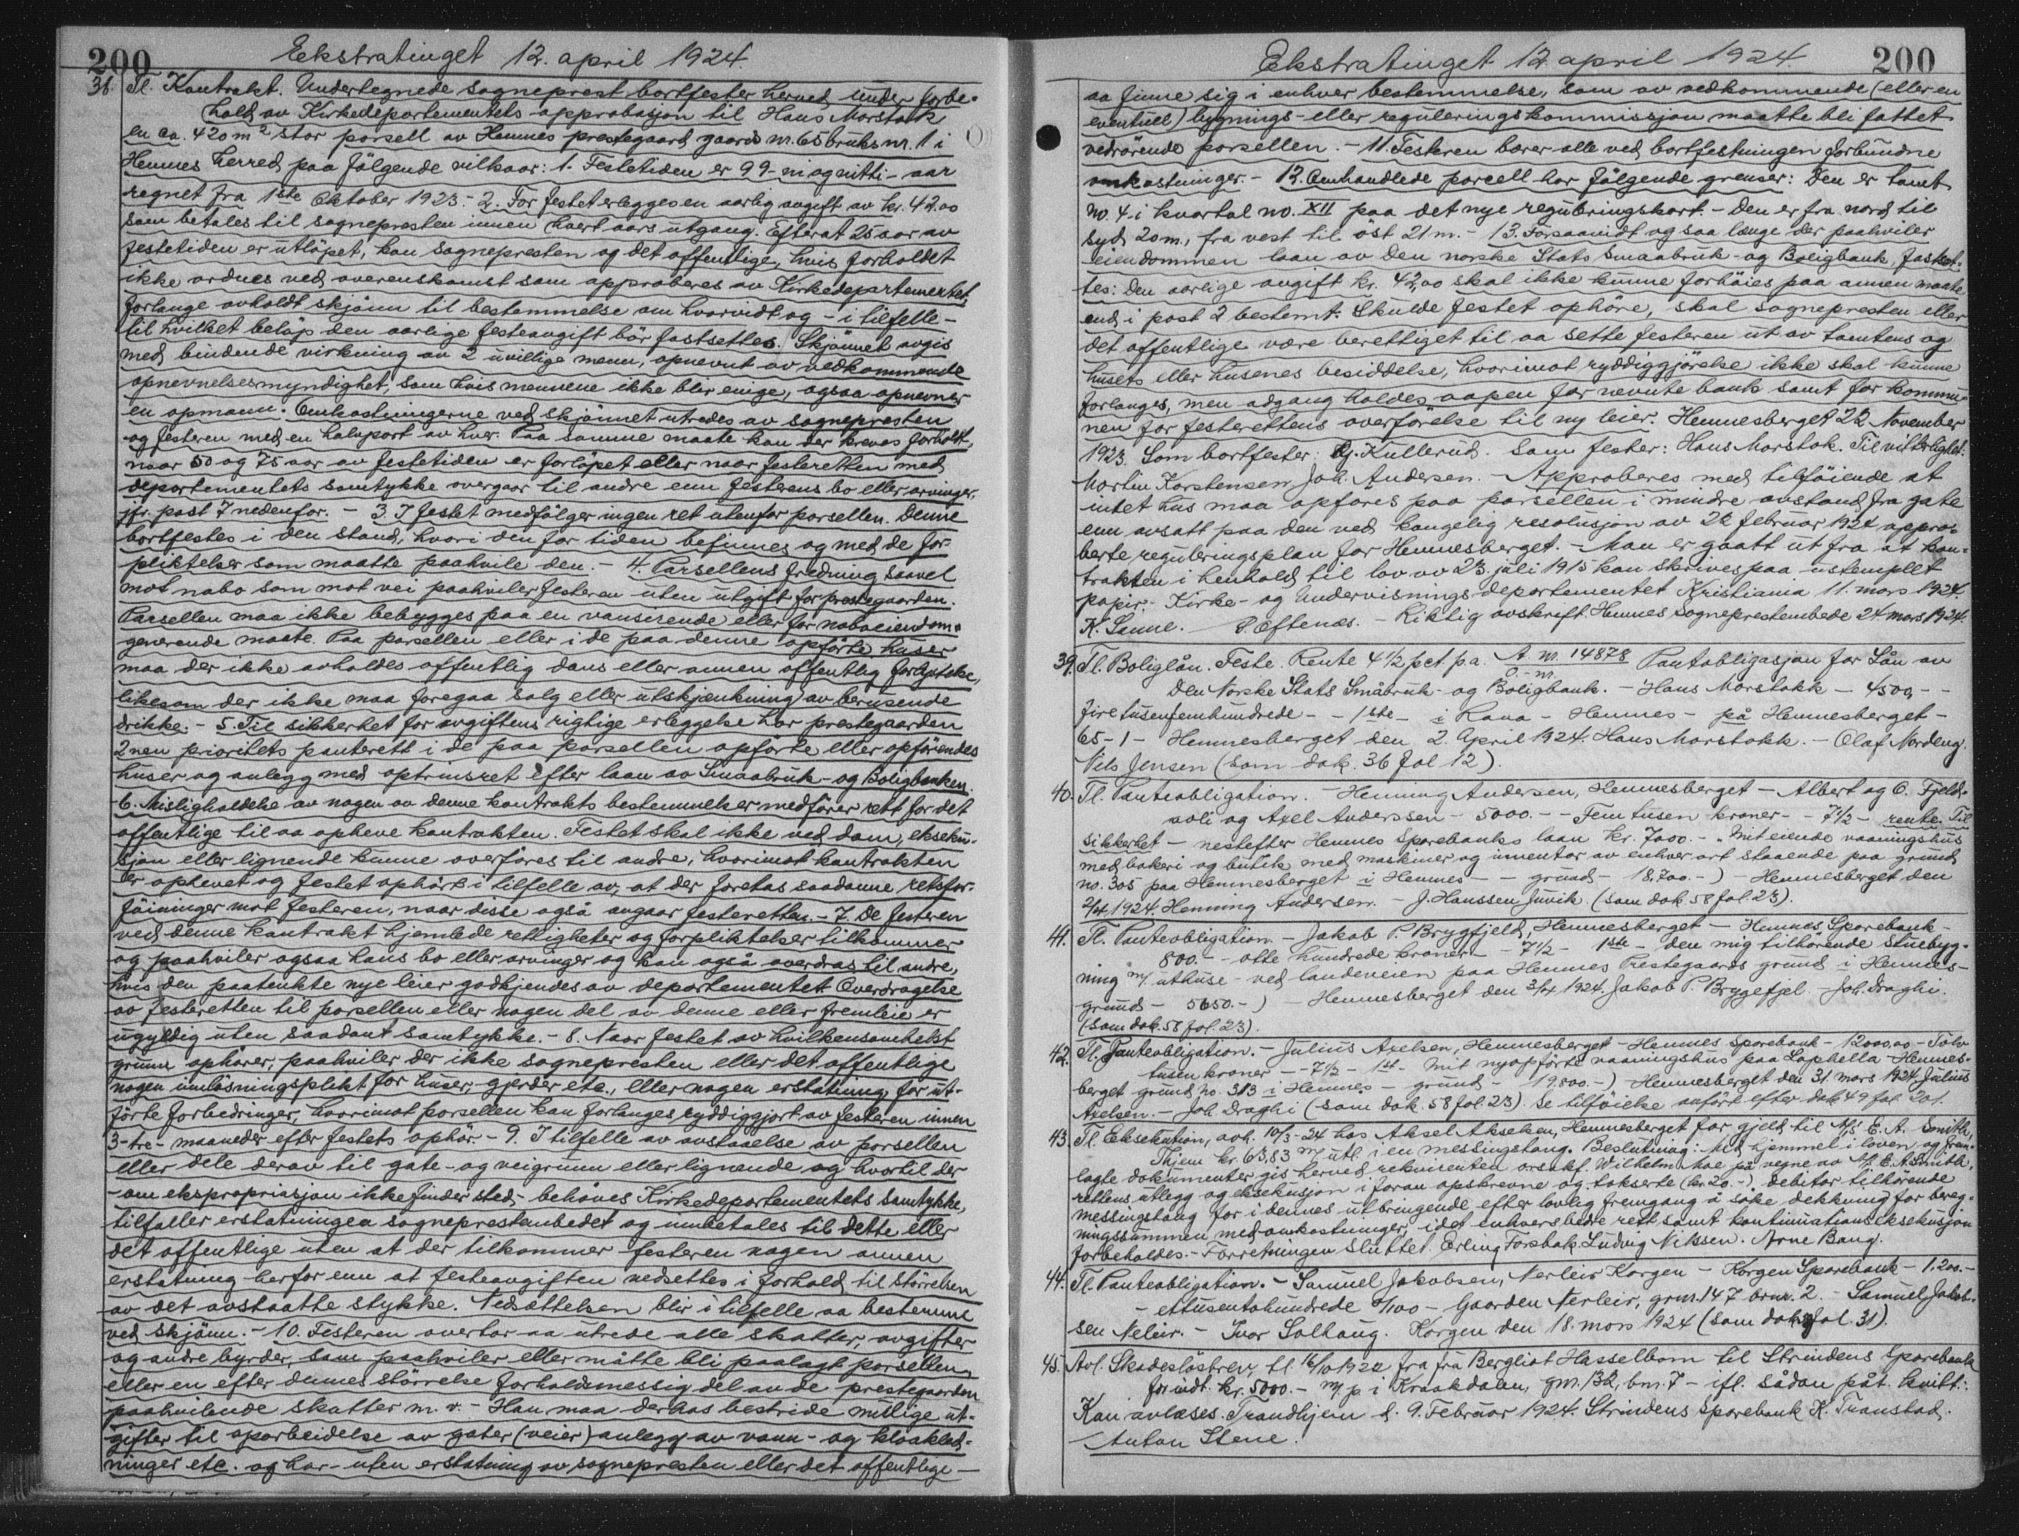 200
Ekstratinget 12. april 1924.
38. Tl. Kontrakt. Undertegnede sogneprest bortfester herved under forbe-
hold av Kirkedepartementets approbasjon til Hans Morstok
en ca. 420 m² stor porsell av Hemnes prestegaard gaards nr. 65 bruks nr. 1 i
Hemnes herred paa følgende vilkaar: 1. Festetiden er 99 - ni og nitti - aar
regnet fra 1ste Oktober 1923. - 2. For festet erlegges en aarlig avgift av kr. 42.00
som betales til sognepresten innen hvert aars utgang. Efter at 25 aar av
festetiden er utløpet, kan sognepresten og det offentlige, hvis forholdet
ikke ordnes ved overenskomst som approberes av Kirkedepartementet
forlange avholdt skjønn til bestemmelse om hvorvidt og - i tilfelle -
til hvilket beløp den aarlige festeavgift bør fastsettes. Skjønnet avgis
med bindende virkning av 2 uvillige menn, opnevnt av vedkommende
opnevnelsesmyndighet, som hvis mennene ikke blir enige, ogsaa opnevner
en opmann. Omkostningerne ved skjønnet utredes av sognepresten
og festeren med en halvport av hver. Paa samme maate kan der kreves forholdt,
naar 50 og 75 aar av festetiden er forløpet eller naar festeretten med
departementets samtykke overgaar til andre enn festerens bo eller arvinger,
jfr. post 7 nedenfor. - 3. I festet medfølger ingen ret utenfor porsellen. Denne
bortfestes i den stand, hvori den for tiden befinnes og med de for-
pliktelser som maatte paahvile den. - 4. Parsellens fredning saavel
mot nabo som mot vei paahviler festeren uten utgift for prestegaarden.
Parsellen maa ikke bebygges paa en vansirende eller for naboeiendom-
generende maate. Paa porsellen eller i de paa denne opførte huser
maa der ikke avholdes offentlig dans eller annen offentlig forlystelse,
likesom der ikke maa foregaa salg eller utskjænkning av berusende
drikke. - 5. Til sikkerhet for avgiftens rigtige erleggelse har prestegaarden
2nen prioritets panterett i de paa porsellen opførte eller opførendes
huser og anlegg med optrinsret efter laan av Smaabruk- og Boligbanken.
- 6. Misligholdelse av nogen av denne kontrakts bestemmelser medfører rett for det
offentlige til aa opheve kontrakten. Festet skal ikke ved dom, eksekus-
sjon eller lignende kunne overføres til andre, hvorimot kontrakten
er ophevet og festet ophørt i tilfelle av, at der foretas saadanne retsfor-
føininger mot festeren, naar disse også angaar festeretten. - 7. De festeren
ved denne kontrakt hjemlede rettigheter og forpliktelser tilkommer
og paahviler ogsaa hans bo eller arvinger og kan også overdras til andre,
hvis den paatenkte nye leier godkjendes av departementet. Overdragelse
av festeretten til porsellen eller nogen del av denne eller fremleie er
ugyldig uten saadant samtykke. - 8. Naar festet av hvilkensomhelst
grunn ophører, paahviler der ikke sognepresten eller det offentlige
nogen innløsningsplikt for huser, gjerder etc., eller nogen erstatning for ut-
førte forbedringer, hvorimot porsellen kan forlanges ryddiggjort av festeren innen
3 - tre - maaneder efter festets ophør. - 9. I tilfelle av avstaaelse av porsellen
eller dele derav til gate- og veigrunn eller lignende og hvortil der
- om ekspropriasjon ikke finder sted - behøves Kirkedepartementets samtykke,
tilfaller erstatningen sogneprestembedet og innbetales til dette eller
det offentlige uten at der tilkommer festeren nogen annen
erstatning herfor enn at festeavgiften nedsettes i forhold til størrelsen
av det avstaatte stykke. Nedsættelsen blir i tilfelle aa bestemme
ved skjønn. - 10. Festeren overtar aa utrede alle skatter, avgifter
og andre byrder, som paahviler eller måtte bli paalagt porsellen
eller en efter dennes størrelse forholdsmessig del av de prestegaarden
paahvilende skatter m. v. - Han maa derhos bestride mulige ut-
gifter til oparbeidelse av gater (veier) anlegg av vann- og kloakled-
ninger etc. og har - uten erstatning av sognepresten eller det offentlige -
Ekstratinget 12. april 1924.
200
aa finne sig i enhver bestemmelse, som av vedkommende (eller en
eventuell) bygnings- eller reguleringskommissjon maatte bli fattet
vedrørende porsellen. - 11. Festeren bærer alle ved bortfestningen forbundne
omkostninger. - 12. Omhandlede porcell har følgende grenser: Den er tomt
no. 4 i kvartal no. XII paa det nye reguleringskart. - Den er fra nord til
syd 20 m, fra vest til øst 21 m. - 13. Forsaavidt og saa længe der paahviler
eiendommen laan av Den norske Stats Smaabruk- og Boligbank, fastset-
tes: Den aarlige avgift kr. 42,00 skal ikke kunne forhøies paa annen maate
end i post 2 bestemt. Skulde festet ophøre, skal sognepresten eller
det offentlige være berettiget til aa sette festeren ut av tomtens og
husets eller husenes besiddelse, hvorimot ryddiggjørelse ikke skal kunne
forlanges, men adgang holdes aapen for nevnte bank samt for kommu-
nen for festerettens overførelse til ny leier. Hemnesberget 22 November
1923. Som bortfester: Kullerud. Som fester: Hans Morstok. Til vitterlighet:
Martin Korstensen, Joh. Andersen. - Approberes med tilføiende at
intet hus maa opføres paa porsellen i mindre avstand fra gate
enn avsatt paa den ved kongelig resolusjon av 22 februar 1924 appro-
berte reguleringsplan for Hemnesberget. - Man er gaatt ut fra at kon-
trakten i henhold til lov av 23. juli 1915 kan skrives paa ustemplet
papir. - Kirke- og Undervisningsdepartementet Kristiania 11. mars 1924.
K. Sanne. P. Eftenæs. - Riktig avskrift. Hemnes sogneprestembede 24 mars 1924.
39. Tl. Boliglån. Feste. Rente 4 1/2 pct. p.a. A nr. 14878 Pantobligasjon for Lån av
O. - nr.
Den Norske Stats Småbruk- og Boligbank. - Hans Morstokk - 4500 - -
fire tusenfemhundrede - - 1ste - i Rana - Hemnes - på Hemnesberget -
65 - 1 - Hemnesberget den 2. April 1924. Hans Morstokk. - Olaf Nordeng.
Nils Jensen (som dok. 36 fol 12).
40. Tl. Panteobligation. - Henning Andersen, Hemnesberget - Albert og O. Fjeld-
avli og Axel Anderssen - 5000. - - Fem tusen kroner - - 7 1/2 - rente. Til
sikkerhet - nestefter Hemnes Sparebanks laan kr. 7000 - - Mit eiende vaaningshus
med bakeri og butik med maskiner og inventar av enhver art staaende paa grund
no. 305 paa Hemnesberget i Hemnes - - grund - 18,200. - ) - Hemnesberget den
2/4 1924. Henning Andersen. - J. Hanssen Juvik (som dok 58 fol. 23).
41. Tl. Panteobligation - Jakob P. Brygfjeld, Hemnesberget - Hemnes Sparebank -
800. - - otte hundrede kroner - - 7 1/2 - 1ste - den mig tilhørende stuebyg-
ning m/ uthuse ved landeveien paa Hemnes Prestegaards grund i Hemnes -
grund - 5650. - ) - Hemnesberget den 3/4 1924. Jakob P. Brygefjel - Joh. Draghi.
(som dok. 58 fol. 23).
42. Tl. Panteobligation. - Julius Axelsen, Hemnesberget - Hemnes Sparebank - 12000,00 - Tolv
tusen kroner - - 7 1/2 - 1ste - mit nyopførte vaaningshus paa Laphella Hemnes-
berget grund no. 313 i Hemnes - grund - 19,800. - ) Hemnesberget den 31. mars 1924. Julius
Axelsen. - Joh. Draghi (som dok. 58 fol. 23). Se tilføielse anført efter dok 49 fol. 201.
43. Tl. Eksekution, avh. 10/3-24 hos Aksel Akselsen, Hemnesberget for gjeld til A/S E. A. Smith,
Thjem kr. 63,83 m/ utl. i en messingstang. Beslutning: Med hjemmel i loven og frem-
lagte dokumenter gis herved rekvirenten o.r.sakf. Wilhelm Moe på vegne av A/S E. A. Smith,
rettens utlegg og eksekusjon i foran opskrevne og takserte (kr. 20. -) debitor tilhørende
messingstang for i dennes utbringende efter lovlig fremgang å søke dekkning for bereg-
ningssummen med omkostninger, idet enhvers bedre rett samt kontinuationseksekusjon
forbeholdes. - Forretningen sluttet. Erling Forsbak. Ludvig Nilssen. Arne Bang.
44. Tl. Panteobligation. - Samuel Jakobsen, Nerleir Korgen - Korgen Sparebank - 1.200. -
- ettusentohundrede 0/100 - Gaarden Nerleir, grnr. 147 brnr. 2. - Samuel Jakob-
sen Neleir. - Ivor Solhaug. Korgen den 18. mars 1924 (som dok fol. 31).
45. Avl. Skadesløsbrev, tl. 16/10 1922 fra fru Bergliot Hasselbom til Strindens Sparebank
for indt. kr. 5000. - m/ p i Kraakdalen, gnr. 132, bnr. 7 - ifl. sådan påt. kvitt.:
Kan avlæses. Trondhjem d. 9. Februar 1924. Strindens Sparebank K. Transtad.
Anton Stene.